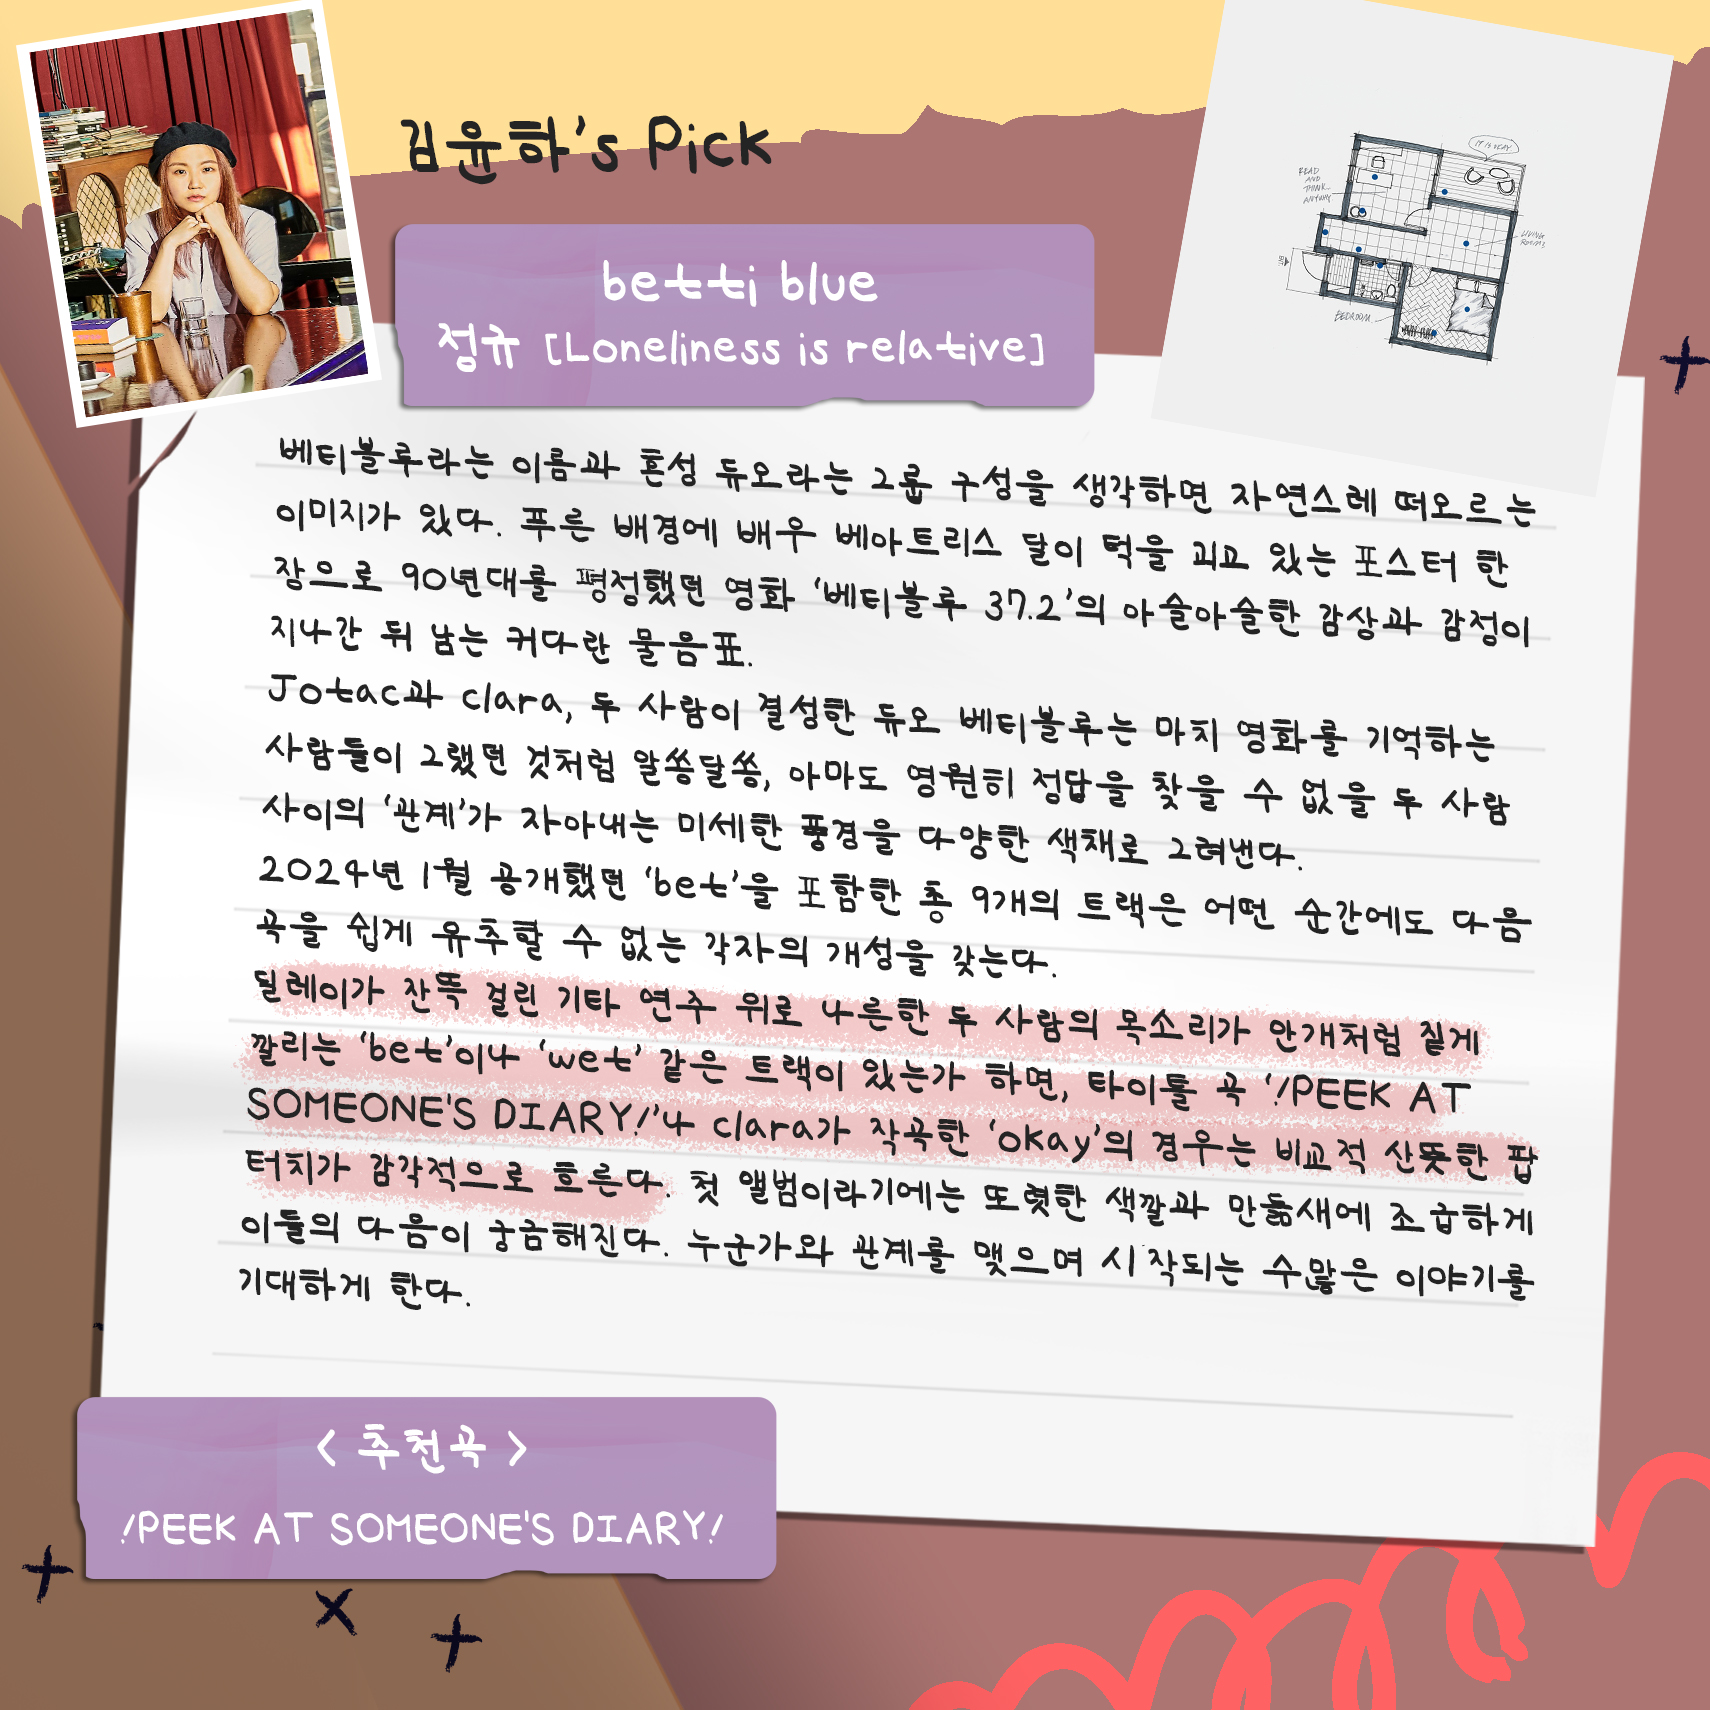 김윤하's Pick
betti blue
정규 [Loneliness is relative]
IT IS OKAY
READ
AND
THINK
ANYTHING
LIVING
ROOM
BEDROOM
베티블루라는 이름과 혼성 듀오라는 그룹 구성을 생각하면 자연스레 떠오르는
이미지가 있다. 푸른 배경에 배우 베아트리스 달이 턱을 괴고 있는 포스터 한
장으로 90년대를 평정했던 영화 '베티블루 37.2'의 아슬아슬한 감상과 감정이
지나간 뒤 남는 커다란 물음표.
Jotac과 clara, 두 사람이 결성한 듀오 베티블루는 마치 영화를 기억하는
사람들이 그랬던 것처럼 알쏭달쏭, 아마도 영원히 정답을 찾을 수 없을 두 사람
사이의 '관계'가 자아내는 미세한 풍경을 다양한 색채로 그려낸다.
2024년 1월 공개했던 'bet'을 포함한 총 9개의 트랙은 어떤 순간에도 다음
곡을 쉽게 유추할 수 없는 각자의 개성을 갖는다.
딜레이가 잔뜩 걸린 기타 연주 위로 나른한 두 사람의 목소리가 안개처럼 짙게
깔리는 'bet'이나 'wet' 같은 트랙이 있는가 하면, 타이틀 곡 '!PEEK AT
SOMEONE'S DIARY!'나 clara가 작곡한 'okay'의 경우는 비교적 산뜻한 팝
터치가 감각적으로 흐른다. 첫 앨범이라기에는 또렷한 색깔과 만듦새에 조급하게
이들의 다음이 궁금해진다. 누군가와 관계를 맺으며 시작되는 수많은 이야기를
기대하게 한다.
< 추천곡 >
!PEEK AT SOMEONE'S DIARY!